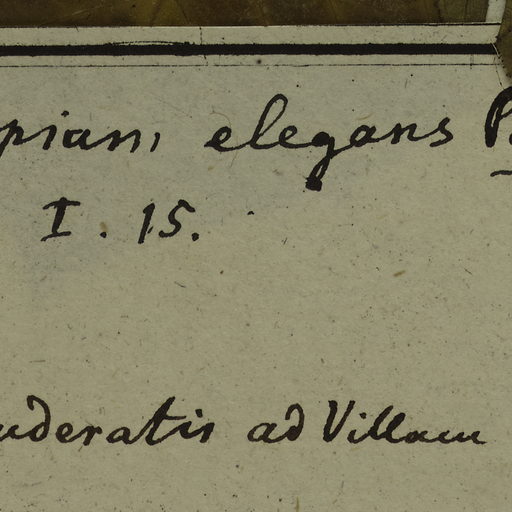 piani elegans P.
I. 15.
uderatis ad Villam